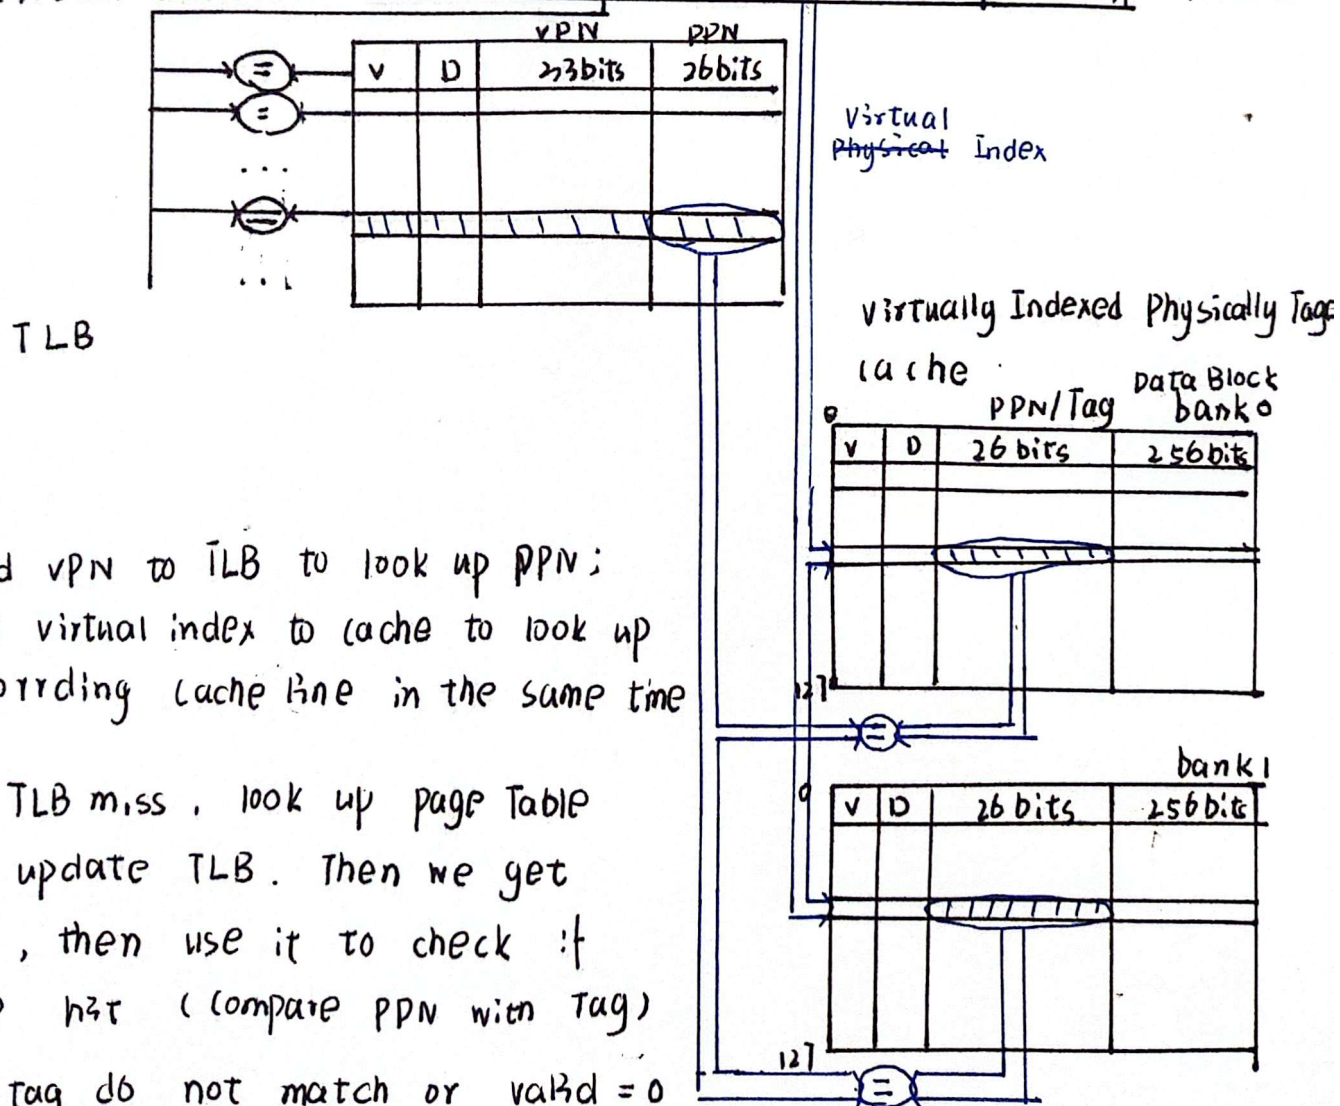 VPN PPN
V D 33bits 26bits
=
=
...
=
...
Virtual
Physical Index
TLB
Virtually Indexed Physically Tage
cache
Data Block
PPN/Tag bank0
0
V D 26 bits 256 bits
127
=
d VPN to TLB to look up PPN;
virtual index to cache to look up
orrding cache line in the same time
TLB miss, look up page Table
update TLB. Then we get
, then use it to check if
hit (compare PPN with Tag)
Tag do not match or valid = 0
bank1
0
V D 26 bits 256 bits
127
=